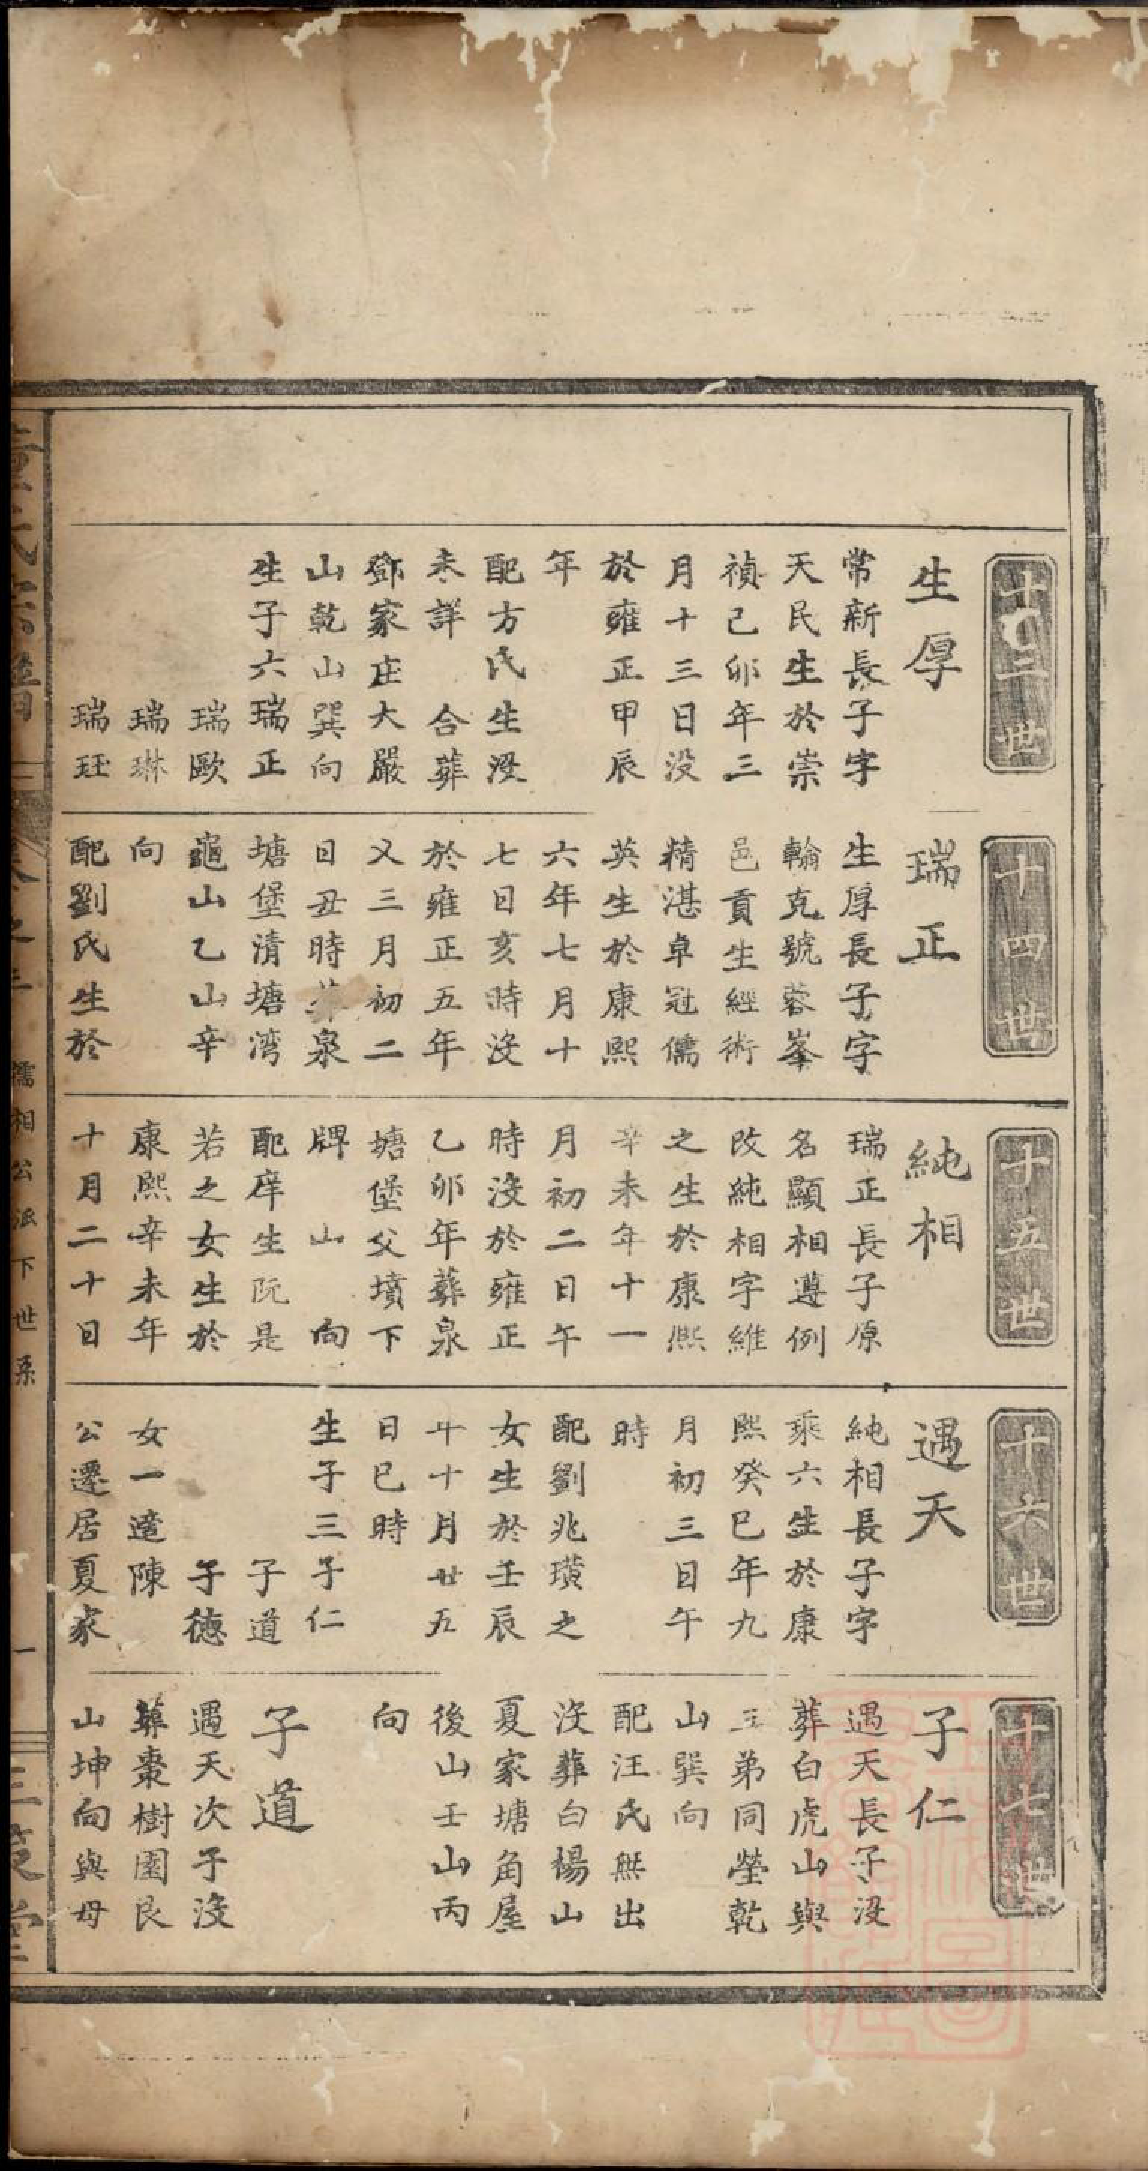 十三世
生厚
常新長子字
天民生於崇
禎己卯年三
月十三日没
於雍正甲辰
年
配方氏生殁
未詳 合葬
鄧家庄大嚴
山乾山巽向
生子六瑞正
瑞歐
瑞琳
瑞玨
十四世
瑞正
生厚長子字
翰克號蓉峯
邑貢生經術
精湛卓冠儒
英生於康熙
六年七月十
七日亥時没
於雍正五年
又三月初二
日丑時葬泉
塘堡清塘湾
龜山乙山辛
向
配劉氏生於
十五世
純相
瑞正長子原
名顯相遵例
改純相字維
之生於康熙
辛未年十一
月初二日午
時没於雍正
乙卯年葬泉
塘堡父墳下
牌 山 向
配庠生阮是
若之女生於
康熙辛未年
十月二十日
十六世
遇天
純相長子字
乘六生於康
熙癸巳年九
月初三日午
時
配劉兆璜之
女生於壬辰
年十月廿五
日巳時
生子三子仁
子道
子德
女一適陳
公遷居夏家
十七世
子仁
遇天長子没
葬白虎山與
三弟同塋乾
山巽向
配汪氏無出
没葬白楊山
夏家塘角屋
後山壬山丙
向
子道
遇天次子没
葬棗樹園艮
山坤向與母
儒相公派下世系
一
三
堂